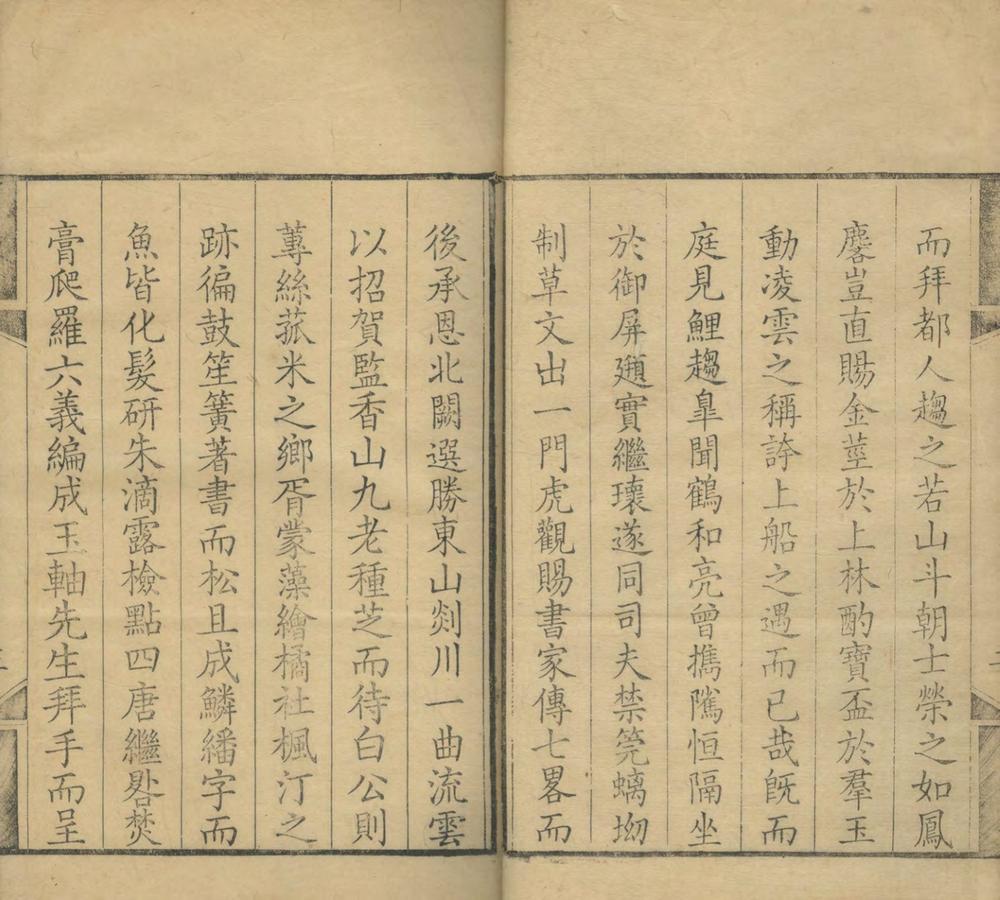 而拜都人趨之若山斗朝士榮之如鳳
麐豈直賜金莖於上林酌寶盃於羣玉
動凌雲之稱誇上船之遇而已哉旣而
庭見鯉趨臯聞鶴和亮曾擕隲恒隔坐
於御屏頲實繼瓌遂同司夫禁筦螭坳
制草文出一門虎觀賜書家傳七畧而
後承恩北闕選勝東山剡川一曲流雲
以招賀監香山九老種芝而待白公則
蓴絲菰米之鄉胥蒙藻繪橘社楓汀之
跡徧鼓笙簧著書而松且成鱗繙字而
魚皆化髮研朱滴露檢點四唐繼晷焚
膏爬羅六義編成玉軸先生拜手而呈